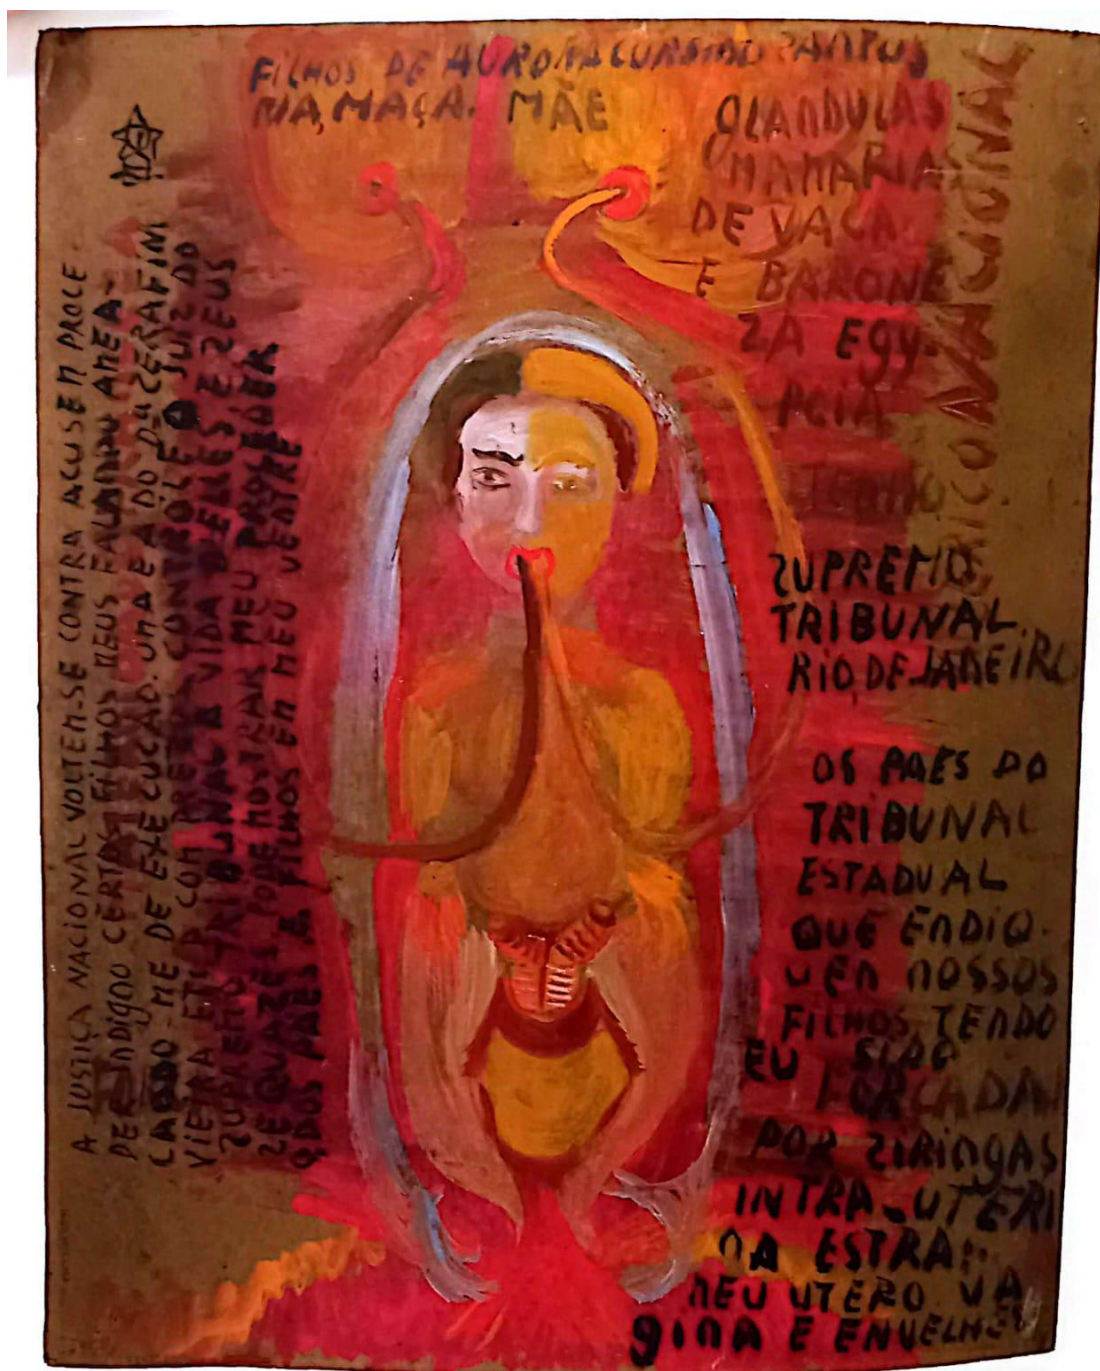 FILHOS DE AURORA CURSINO ZANTOS
MAÇA. MÃE
GLANDULAS
MAMARIA
DE VACA
E BARONE
ZA EGY-
PCIA
ZUPREMO,
TRIBUNAL.
RIO, DE JANEIRO
OS PAES DO
TRIBUNAL
ESTADUAL
QUE ENDIQ-
UEN NOSSOS
FILHOS, TENDO
EU SIDO
FORÇADA
POR ZIRINGAS
INTRA-UTERI
NA ESTRA
MEU UTERO VA
GINA E ENVELHE
NACIONAL
A JUSTIÇA NACIONAL VOLTEN-SE CONTRA ACUSEN PROCE-
DER INDIGNO CERTAS FILHOS MEUS FALANDO AMEA-
ÇADO-ME DE EZECUCÃO. UMA E A DO Dª ZERAFIM
VIEIRA ETLP CON PRETO CONTROLE O JUIZ DO
ZUPREMO TRIBUNAL A VIDA DELLES E ZEUS
ZEQUAZES PODE MOSTRAR MEU PROSEDER
PAES E FILHOS EN MEU VENTRE